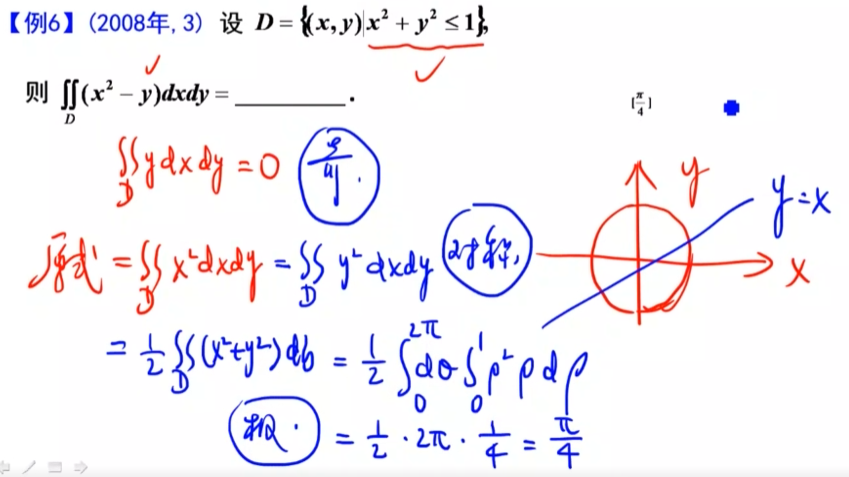 【例6】(2008年, 3) 设 D = {(x, y)|x² + y² ≤ 1},
则 ∬_D (x² − y)dxdy = ________.
[π/4]
∬_D y dx dy = 0
y
y=x
原式 = ∬_D x² dx dy = ∬_D y² dx dy 对称,
x
= 1/2 ∬_D (x²+y²) dσ = 1/2 ∫_0^{2π} dθ ∫_0^1 ρ² ρ dρ
极. = 1/2 · 2π · 1/4 = π/4